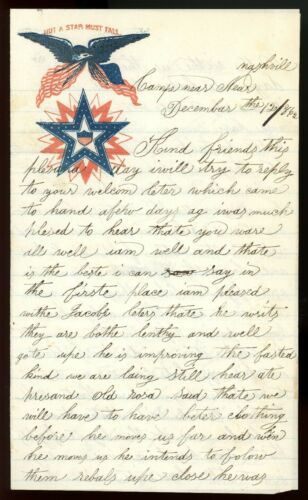 NOT A STAR MUST FALL.
nashvill
Camp near Near
December the 12/1862
Kind friends this
plesant day i will try to reply
to your welcom leter which came
to hand a few days ag i was much
plesed to hear thate you ware
all well i am well and thate
is the beste i can say in
the firste place iam pleased
withe Jacobs leters thate he writs
they are bothe lenthy and well
gote upe he is improving the fasted
kind we are laing still hear ate
presand Old rosa said thate we
will have to have beter clothing
before he moves us far and when
he moves us he intends to folow
them rebals upe close he was